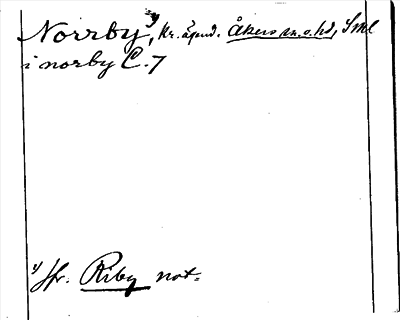 Norrby¹⁾, Kr. åsmd. Åkers sn. o. hd, Sml
i norby C. 7
¹⁾ Jfr. Riby not.